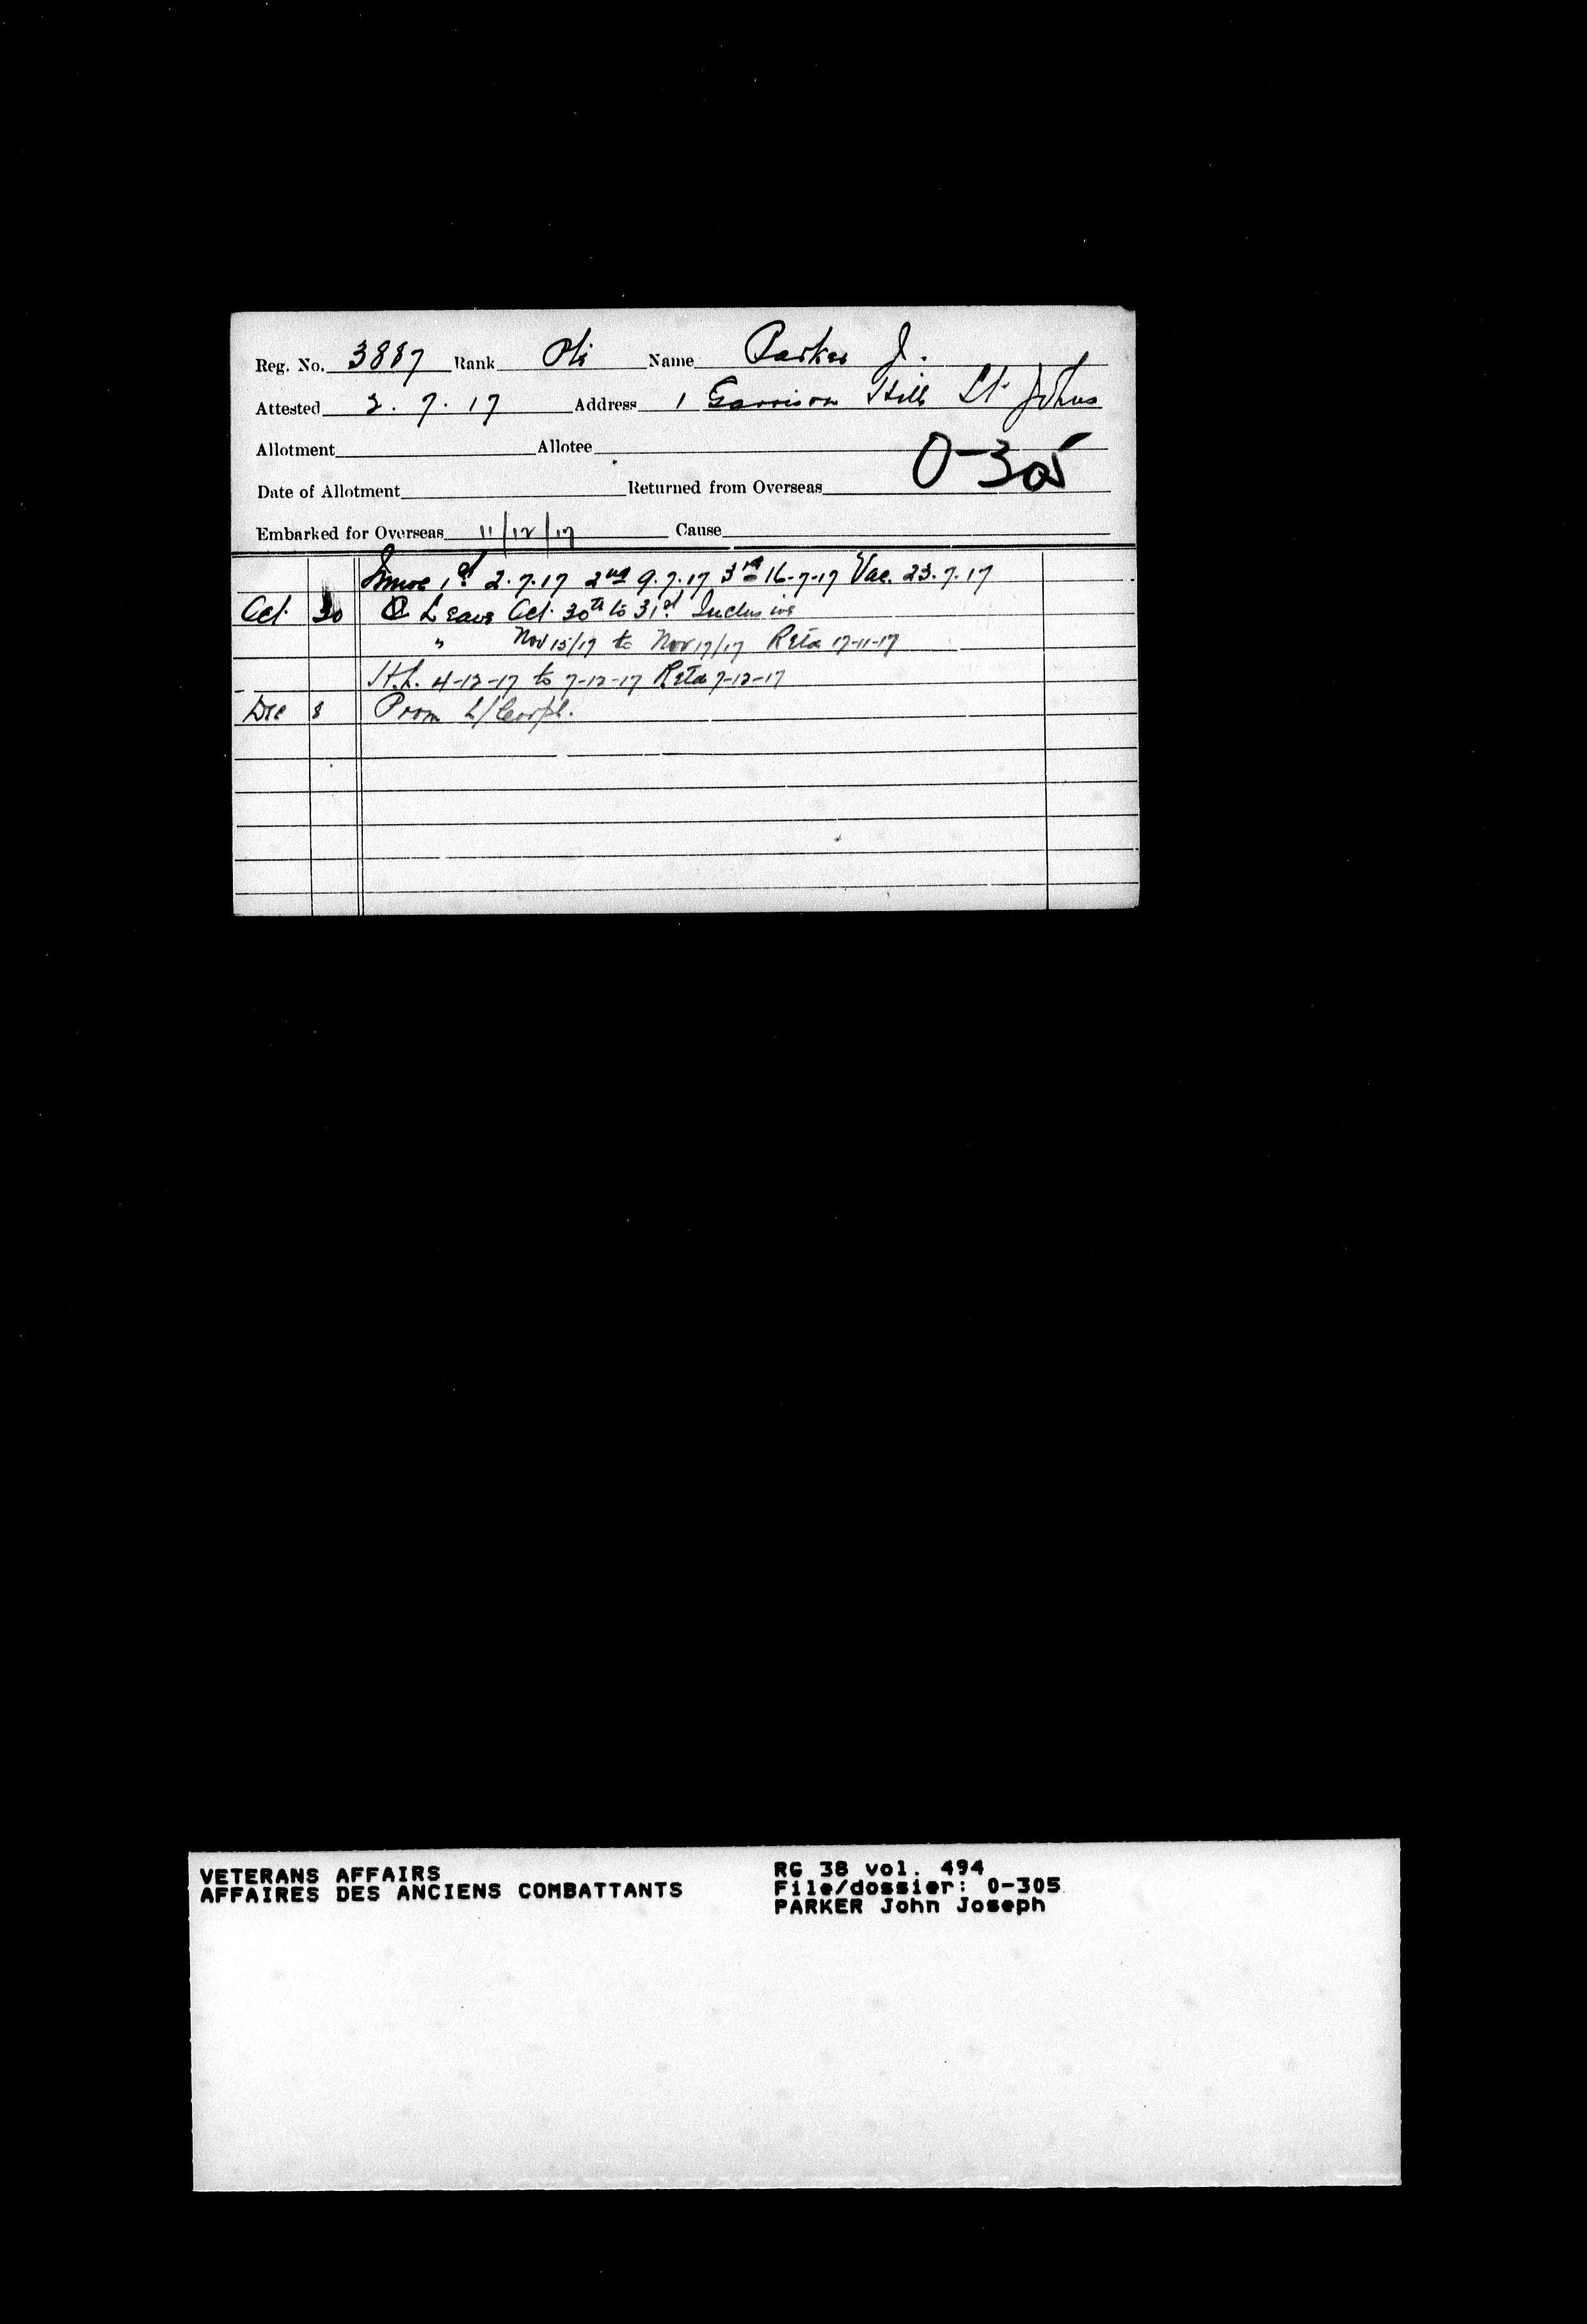 Reg. No. 3887 Rank Pte Name Parker J.
Attested 2. 7. 17 Address 1 Garrison Hill St Johns
Allotment Allotee
0-305
Date of Allotment Returned from Overseas
Embarked for Overseas 11/12/17 Cause
1st 2.7.17 2nd 9.7.17 3rd 16-7-17 Vac. 23.7.17
Oct. 30 Leave Oct. 30th to 31st Inclusive
" Nov 15/17 to Nov 17/17 Retd 17-11-17
H.L. 4-12-17 to 7-12-17 Retd 7-12-17
Dec 8 Prom L/Corpl.
VETERANS AFFAIRS
AFFAIRES DES ANCIENS COMBATTANTS
RG 38 vol. 494
File/dossier: 0-305
PARKER John Joseph